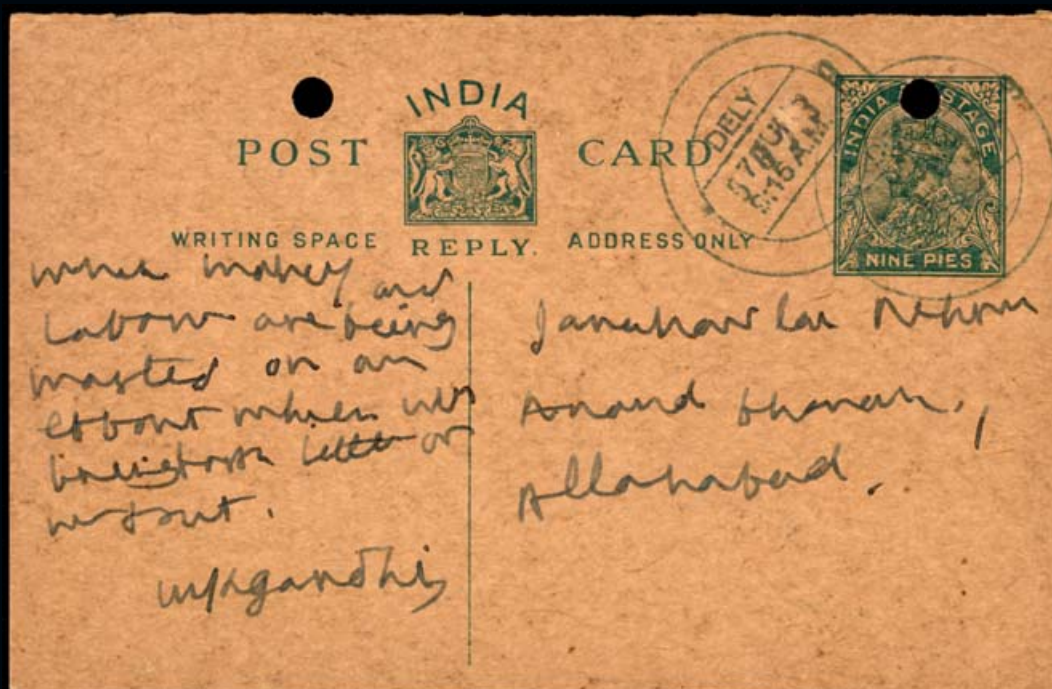 INDIA
POST CARD
WRITING SPACE REPLY. ADDRESS ONLY
INDIA POSTAGE
NINE PIES
DELY
15 A.M
when money and
labour are being
wasted on an
effort which will
bring little or
no fruit.
MKGandhi
Jawaharlal Nehru
Anand Bhawan,
Allahabad.